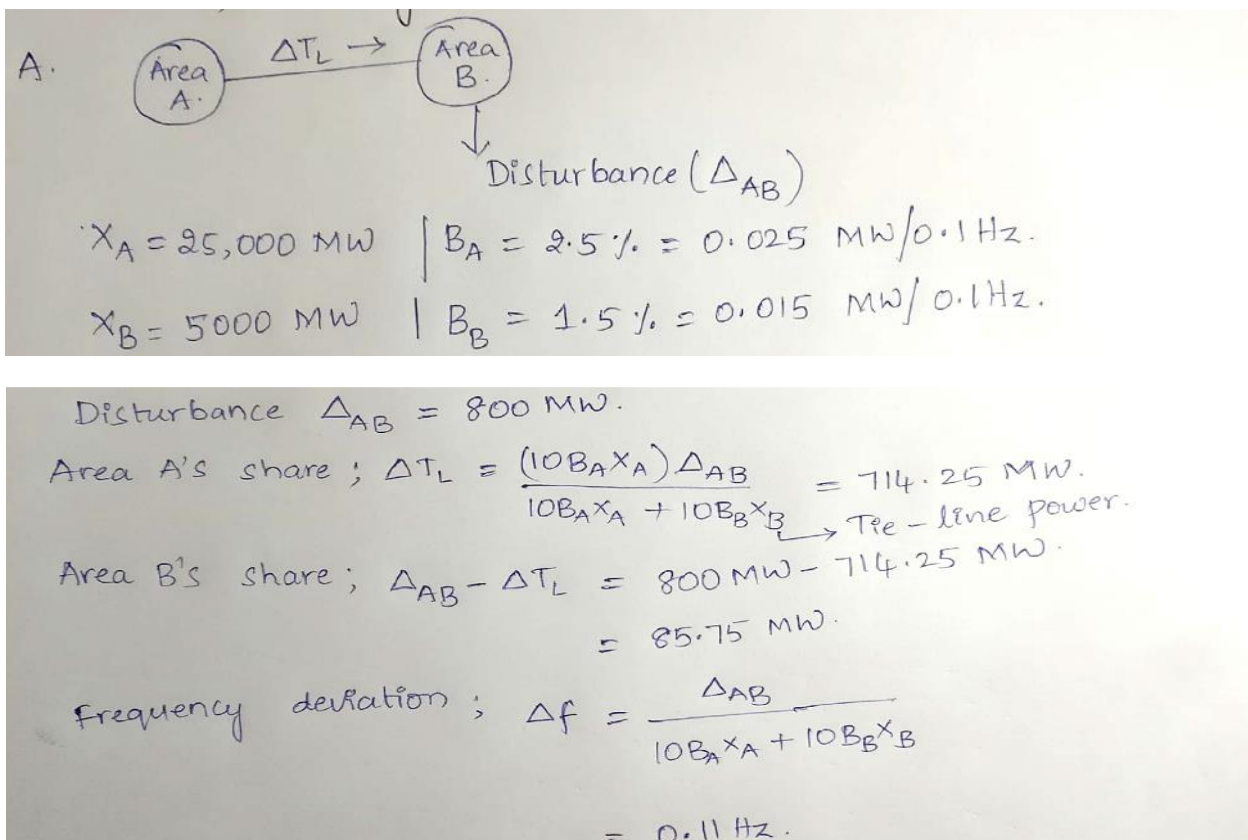 A.
Area A.
ΔT_L →
Area B.
Disturbance (Δ_AB)
X_A = 25,000 MW | B_A = 2.5 % = 0.025 MW/0.1 Hz.
X_B = 5000 MW | B_B = 1.5 % = 0.015 MW/0.1Hz.
Disturbance Δ_AB = 800 MW.
Area A's share ; ΔT_L = (10B_A X_A) Δ_AB / 10B_A X_A + 10B_B X_B = 714.25 MW.
→ Tie-line power.
Area B's share ; Δ_AB - ΔT_L = 800 MW - 714.25 MW.
= 85.75 MW.
Frequency deviation ; Δf = Δ_AB / 10B_A X_A + 10B_B X_B
= 0.11 Hz.